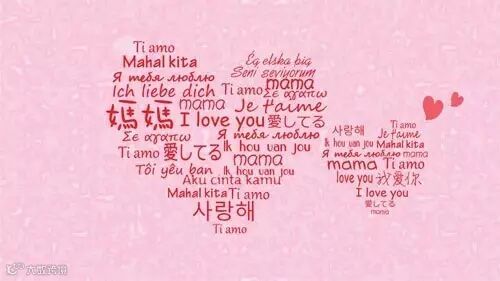 Ti amo
Mahal kita
Ég elska þig
Я тебя люблю
Seni seviyorum
Ich liebe dich
Ti amo
mama
mama
Σε αγαπω
Je t'aime
媽媽
I love you
愛してる
Σε αγαπω
Я тебя люблю
Ti amo
愛してる
Ik hou van jou
mama
Tôi yêu bạn
Ik hou van jou
Aku cinta kamu
Mahal kita
Ti amo
사랑해
Ti amo
Ti amo
사랑해
Je t'aime
Ik hou van jou
Mahal kita
Я тебя люблю
mama
mama
Ti amo
love you
我愛你
I love you
愛してる
mama